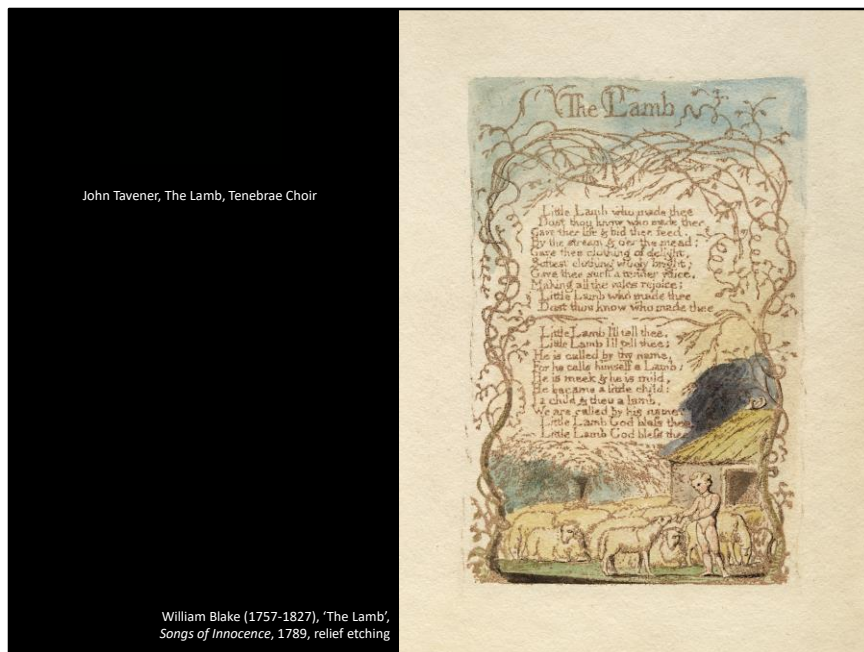 John Tavener, The Lamb, Tenebrae Choir
William Blake (1757-1827), ‘The Lamb’,
Songs of Innocence, 1789, relief etching
The Lamb
Little Lamb who made thee
Dost thou know who made thee
Gave thee life & bid thee feed,
By the stream & o'er the mead;
Gave thee clothing of delight,
Softest clothing wooly bright;
Gave thee such a tender voice,
Making all the vales rejoice;
Little Lamb who made thee
Dost thou know who made thee
Little Lamb I'll tell thee,
Little Lamb I'll tell thee;
He is called by thy name,
For he calls himself a Lamb:
He is meek & he is mild,
He became a little child:
I a child & thou a lamb,
We are called by his name.
Little Lamb God bless thee,
Little Lamb God bless thee